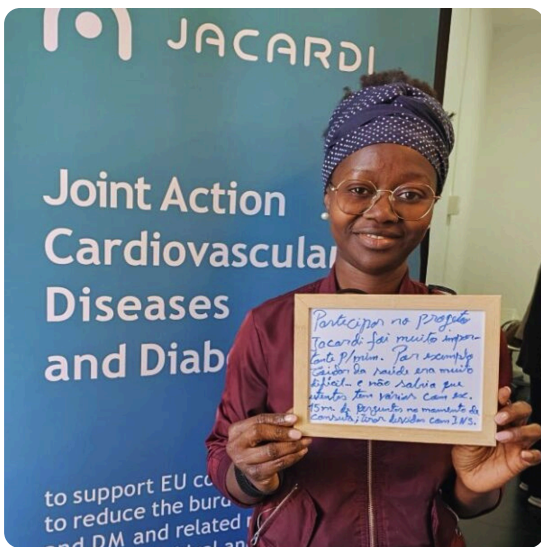 JACARDI
Joint Action
Cardiovascular
Diseases
and Diab
to support EU co
to reduce the burd
and DM and related
Participar no projeto
Jacardi foi muito impor-
tante p/mim. Por exemplo
Cuidar da saúde era muito
difícil e não sabia que
utentes tem várias com ex.
15m. de perguntas no momento da
consulta, tirar dúvidas com I.N.S.